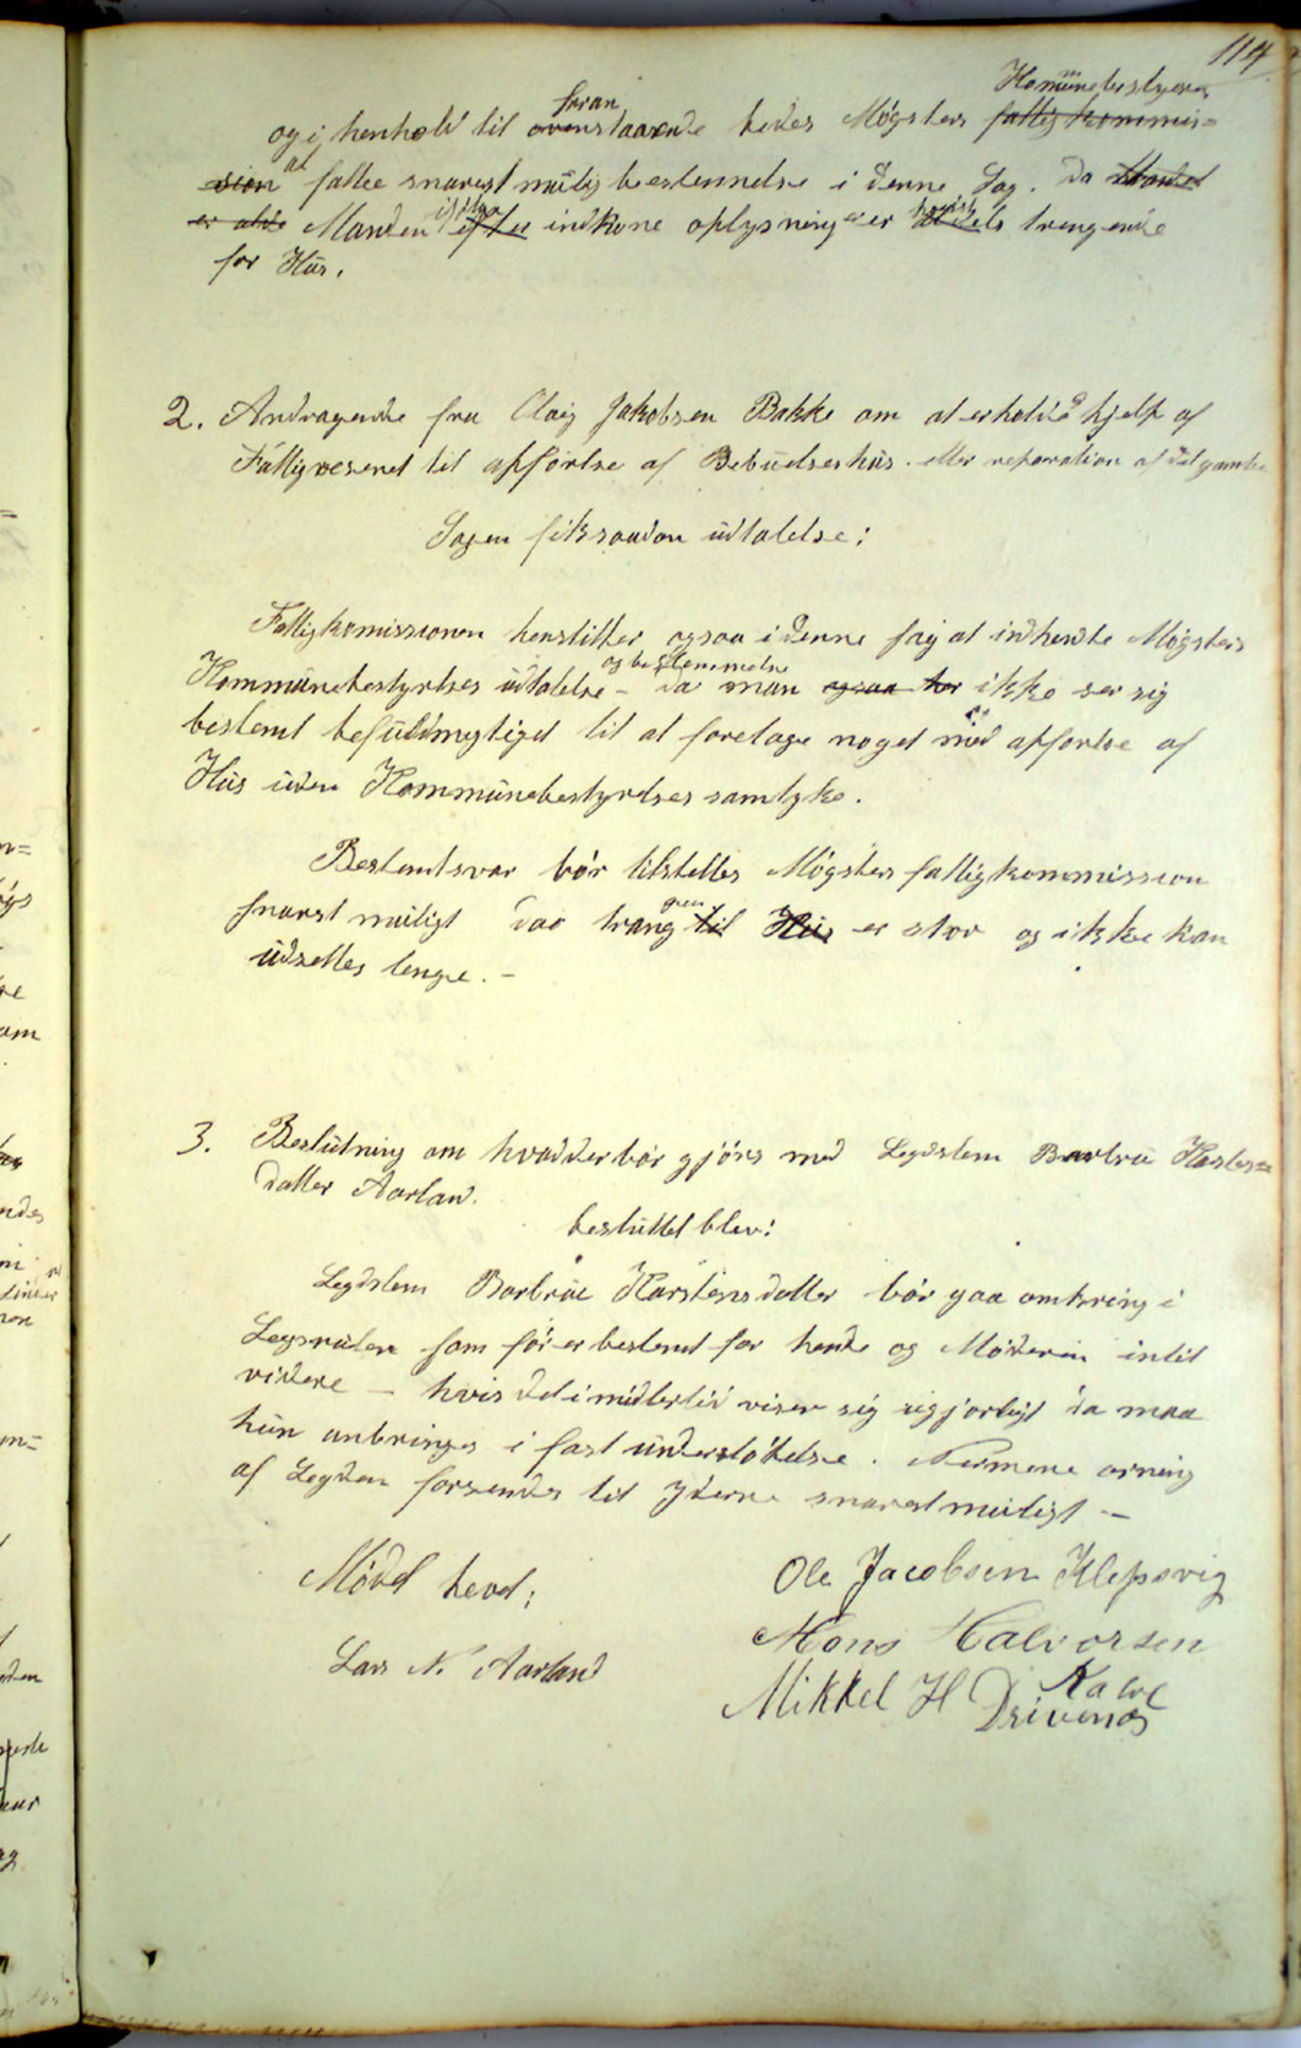 114
foran Komünebestyre
og i henhold til ovenstaaende bedes Møgsters fattigkommis=
sion at fatte snarest müligbestemmelse i denne Sag. da
er altid Manden ifølge efter indkone oplysninger er høist trengende
for Hüs.
2. Andragende fra Olaig Jakobsen Bakke om at erholde hjelp af
Fattigvesenet til opførelse af Bebüelseshüs. eller reparation af det gamle
Sagen fik saadan üdtalelse:
Fattigkomissionen henstiller ogsaa i denne sag at indhendte Møgsters
og bestemmelse
Kommünebestyrelses üdtalelse - da man ogsaa her ikke ser sig
bestemt befüldmegtiget til at foretage noget med opførlse af
Hüs üden Kommünebestyrelses samtyke.
Bestemt svar bør tilstelles Møgsters fattigkommission
gen
snarst müligt da trang til Hüs er stor og ikke kan
üdsettes lenge. -
3. Beslütning om hvad der bør gjøres med Legdslem Barbrü Karstens=
datter Aarland.
beslüttet blev:
Legdslem Barbrü Karstensdatter bør gaa omkring i
Legsrüten som før er bestemt for hende og Møderen intil
videre - hvis det imidlertid viser sig ügjorligt da maa
hün anbringes i fast ünderstøtelse. Nermere orning
af Legden forsendes til Yderne snarest müligt -
Mødd hevd:
Lars N. Aarland
Ole Jacobsen Klepsvig
Mons Halvorsen
Kalve
Mikkel H Drivenes